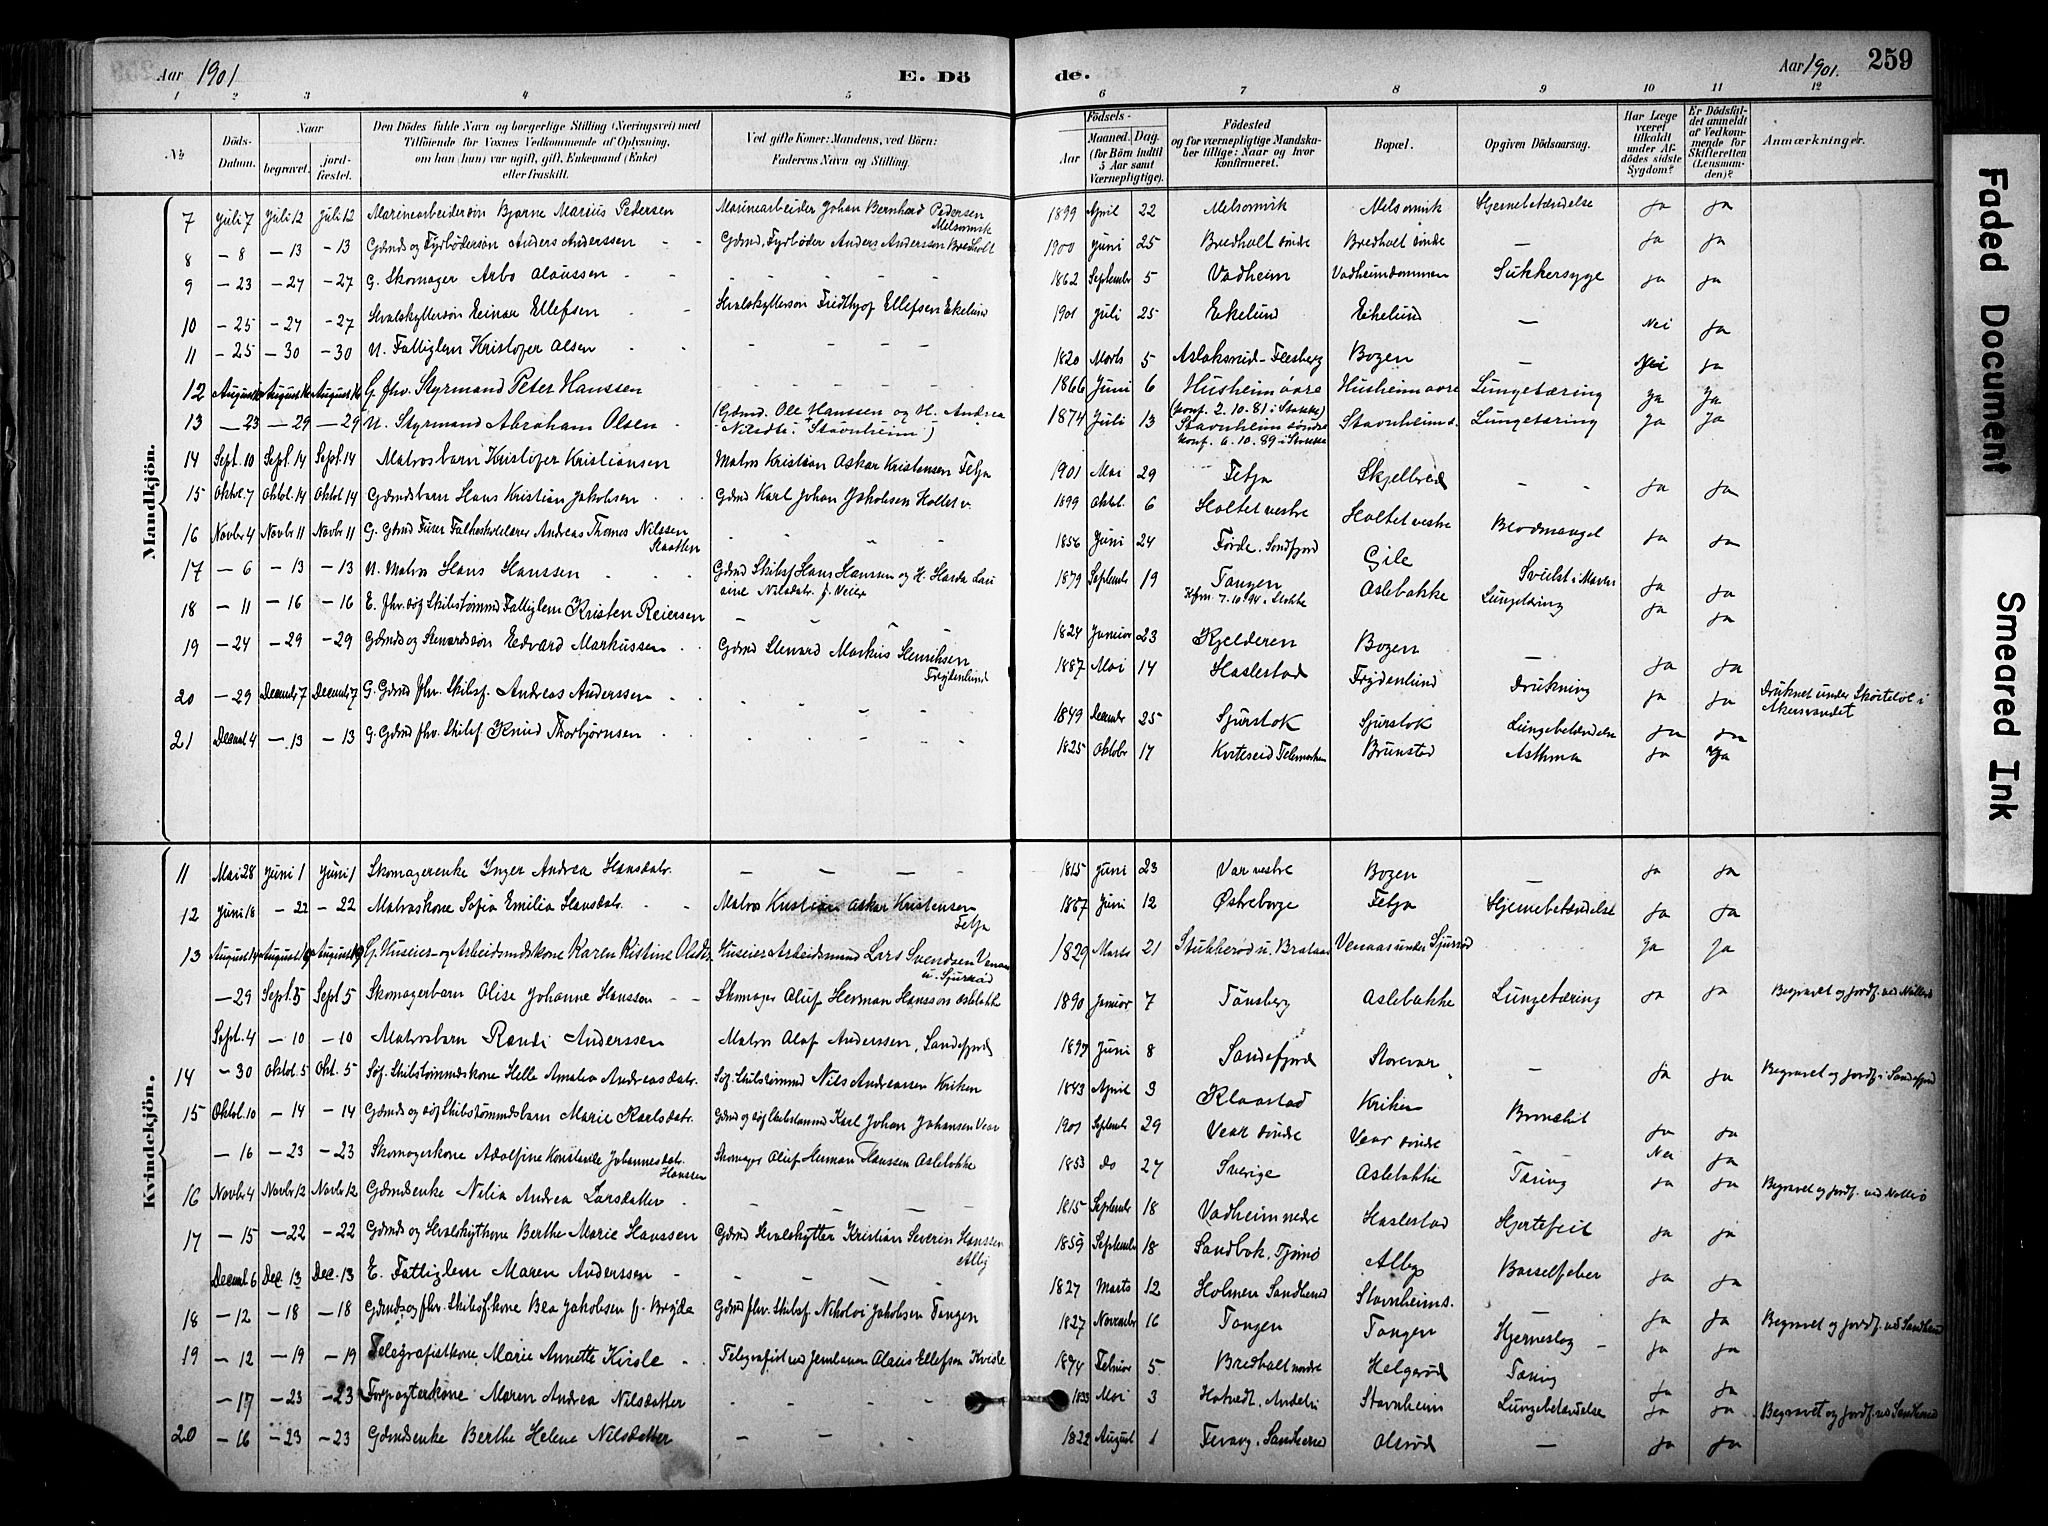 Aar 1901
E. Dö
de.
Aar 1901.
259
1 2 3 4 5 6 7 8 9 10 11 12
No
Döds-Datum.
Naar
begravet.
jordfæstet.
Den Dödes fulde Navn og borgerlige Stilling (Næringsvei) med
Tilföiende for Voxnes Vedkommende af Oplysning,
om han (hun) var ugift, gift, Enkemand (Enke)
eller fraskilt.
Ved gifte Koner: Mandens, ved Börn:
Faderens Navn og Stilling.
Födsels-
Aar
Maaned. Dag.
(for Börn indtil
5 Aar samt
Værnepligtige).
Födested
og for værnepligtige Mandskaber
tillige: Naar og hvor
konfirmeret.
Bopæl.
Opgiven Dödsaarsag.
Har Læge
været
tilkaldt
under Afdödes
sidste
Sygdom?
Er Dödsfaldet
anmeldt
af Vedkommende
for
Skifteretten
(Lensmanden)?
Anmærkninger.
Mandkjön.
7 Juli 7 Juli 12 Juli 12 Marinearbeidersøn Bjarne Marius Pedersen Marinearbeider Johan Bernhard Pedersen Melsomvik 1899 April 22 Melsomvik Melsomvik Hjernebetændelse Ja Ja
8 — 8 — 13 — 13 Gdmds og Fyrbødersøn Anders Anderssen Gdmd. Fyrbøder Anders Anderssen Bredholt 1900 Juni 25 Bredholt søndre Bredholt søndre — Ja Ja
9 — 23 — 27 — 27 G. Skomager Arbo Olaussen 1862 September 5 Vadheim Vadheimdammen Sukkersyge Ja Ja
10 — 25 — 27 — 27 Hvalskyttersøn Einar Ellefsen Hvalskyttersøn Fridthjof Ellefsen Ekelund 1901 Juli 25 Ekelund Ekelund — Nei Ja
11 — 25 — 30 — 30 U. Fattiglem Kristofer Olsen 1820 Marts 5 Aslaksrud-Flesberg Bogen — Nei Ja
12 G. fhv. Styrmand Peter Hanssen 1866 Juni 6 Husheim øvre Husheim øvre Lungetæring Ja Ja
(Konf. 2.10.81 i Stokke)
13 — 23 — 29 — 29 U. Styrmand Abraham Olsen (Gdmd. Ole Hanssen og H. Andrea Nilsdtr. Stavnheim) 1874 Juli 13 Stavnheim søndre Stavnheim s. Lungetæring Ja Ja
Konf. 6.10.89 i Stokke
14 Sept. 10 Sept. 14 Sept. 14 Matrosbarn Kristofer Kristiansen Matros Kristian Oskar Kristensen Fetja 1901 Mai 29 Fetja Skjelbred — Ja Ja
15 Oktol. 7 Oktol. 14 Oktol. 14 Gdmdsbarn Hans Kristian Jakobsen Gdmd Karl Johan Jakobsen Holtet v. 1899 Oktol. 6 Holtet vestre Holtet vestre Blodmangel Ja Ja
16 Novbr 4 Novbr 11 Novbr 11 G. Gdmd Furer Folkeskolelærer Andreas Thomas Nilssen Slaatten 1856 Juni 24 Førde, Søndfjord Gile Svulst i Maven Ja Ja
17 — 6 — 13 — 13 U. Matros Hans Hanssen Gdmd Skibsf Hans Hanssen og H. Nilsdatr. 1879 September 19 Tangen Aslebakke Lungetæring Ja Ja
Kfm. 7.10.94 i Stokke
18 — 11 — 16 — 16 E. fhv. søf. Skibstømmd Fattiglem Kristen Reiersen 1824 Januar 23 Kjelderen Bogen — Ja Ja
19 — 24 — 29 — 29 Gdmds og Stenardsøn Edvard Markussen Gdmd Stenard Markus Henriksen Frydenlund 1887 Mai 14 Haslestad Frydenlund Drukning Ja Ja Druknet under Skøiteløb i Akersvandet
20 — 29 Decembr 7 Decembr 7 G. Gdmd fhv. Skibsf. Andreas Anderssen 1849 Decembr 25 Sjurstok Sjurstok Lungebetændelse Ja Ja
21 Decembr 4 — 13 — 13 G. Gdmd fhv. Skibsf Knud Thorbjørnsen 1825 Oktobr 17 Kviteseid Telemarken Brunstad Asthma Ja Ja
Kvindekjön.
11 Mai 28 Juni 1 Juni 1 Skomagerenke Inger Andrea Hansdatr. — 1815 Juni 23 Vær vestre Bogen — Ja Ja
12 Juni 18 — 22 — 22 Matroskone Sofia Emilia Hansdatr. Matros Kristian Oskar Kristensen Fetja 1867 Juni 12 Østreborge Fetja Hjernebetændelse Ja Ja
13 G. Huseier- og Arbeidsmdskone Karen Kistine Olsdtr. Huseier Arbeidsmand Lars Svendsen Venaas u. Sjuerød 1829 Marts 21 Stubberød u. Brataas Venaas under Sjuerød Ja Ja
— 29 Sept. 5 Sept. 5 Skomagerbarn Olise Johanne Hanssen Skomager Oluf Herman Hanssen Aslebakke 1890 Januar 7 Tønsberg Aslebakke Lungetæring Ja Ja Begravet og jordf. ved Nøtterø
Sept. 4 — 10 — 10 Matrosbarn Randi Anderssen Matros Olaf Anderssen, Sandefjord 1897 Juni 8 Sandefjord Storevar — Ja Ja Begravet og jordf. i Sandefjord
14 — 30 Oktol. 5 Okt. 5 Søf. Skibstømmdskone Helle Amalia Andreasdatr. Søf. Skibstømmd Nils Andreassen Kriken 1843 April 3 Klaastad Kriken
15 Oktol. 10 — 14 — 14 Gdmds og søf Skibstømmdsbarn Marie Karlsdatr. Gdmd og søf Skibstømmd Karl Johan Johansen Vear 1901 Septembr 29 Vear søndre Vear søndre Nei Ja
— 16 — 23 — 23 Skomagerkone Adolfine Johannesdatr. Hanssen Skomager Oluf Herman Hanssen Aslebakke 1853 do 27 Sverige Aslebakke Tæring Ja Ja Begravet og jordf. ved Nøtterø
16 Novbr 4 Novbr 12 Novbr 12 Gdmdsenke Nilia Andrea Larsdatter 1815 September 18 Vadheim nedre Haslestad Hjertefeil Ja Ja
17 — 15 — 22 — 22 Gdmds og Hvalskytkone Berthe Marie Hanssen Gdmd Hvalskytter Kristian Severin Hanssen Alby 1859 September 18 Sandbok, Tjømø Alby Barselfeber Ja Ja
Decembr 6 Dec. 13 Dec. 13 E. Fattiglem Maren Anderssen 1827 Marts 12 Holmen Sandherred Stavnheim s. — Ja Ja Begravet og jordf. ved Sandherred
18 — 12 — 18 — 18 Gdmds og fhv. Skibsf. kone Bea Jakobsen f. Bryde Gdmd fhv. Skibsf. Nikolai Jakobsen Tangen 1827 November 16 Tangen Tangen Hjerneslag Ja Ja
19 — 12 — 19 — 19 Telegrafistkone Marie Annette Kvisle Telegrafist ved Jernbanen Olaus Ellefsen Kvisle 1874 Februar 5 Bredholt nordre Helgerød Tæring Ja Ja
— 17 — 23 — 23 Forpagterkone Maren Andrea Nilsdatter 1833 Mai 3 Hotvedt, Andebu Stavnheim Lungebetændelse Ja Ja Begravet og jordf. ved Sandherred
20 — 16 — 23 — 23 Gdmdsenke Berthe Helene Nilsdatter 1822 August 1 Sandherred Olsrød — Ja Ja
Faded Document
Smeared Ink